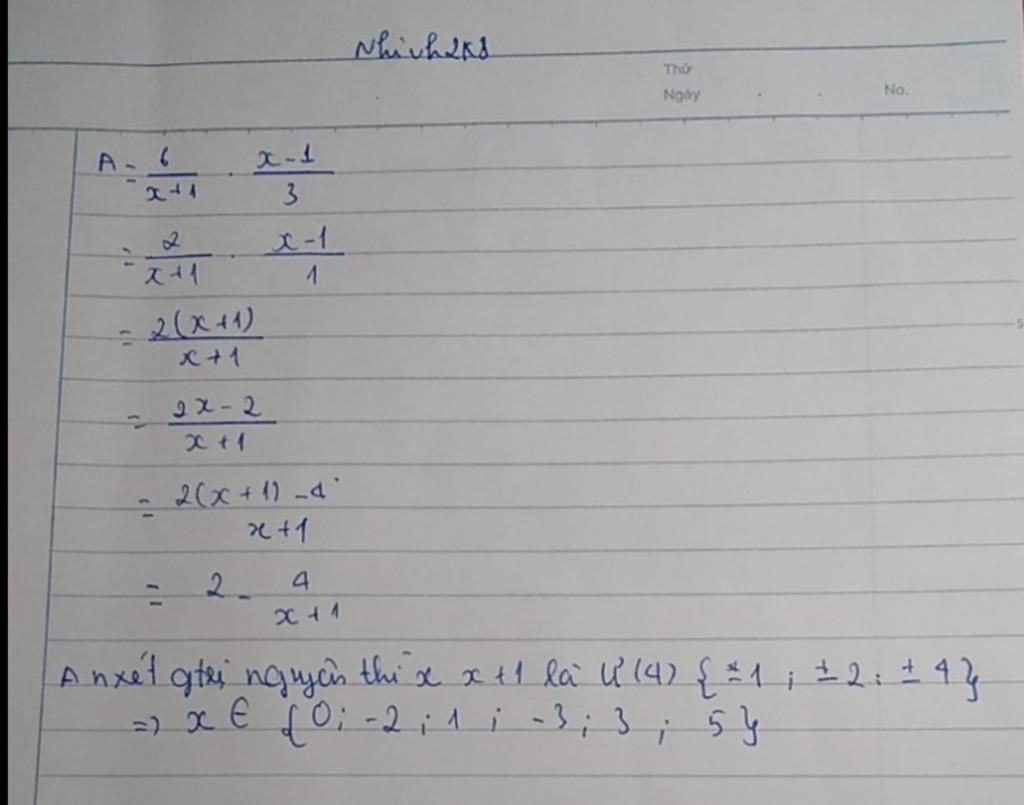 Nhinh2K8
Thứ
Ngày . . No.
A = 6/(x+1) . (x-1)/3
= 2/(x+1) . (x-1)/1
= 2(x+1)/(x+1)
= (2x-2)/(x+1)
= (2(x+1)-4)/(x+1)
= 2 - 4/(x+1)
A nxét gtrị nguyên thì x x+1 là Ư(4) {±1; ±2; ±4}
=> x ∈ {0; -2; 1; -3; 3; 5}